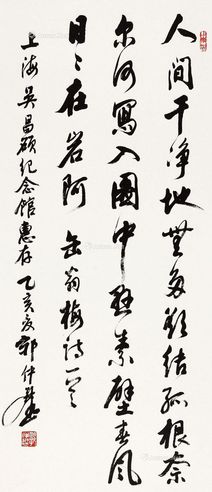 人間干净地無多欲结孤根奈
尔何寫入圖中懸素壁春風
日〻在岩阿 缶翁梅诗一首
上海吳昌碩纪念館惠存 乙亥夏 郭仲選